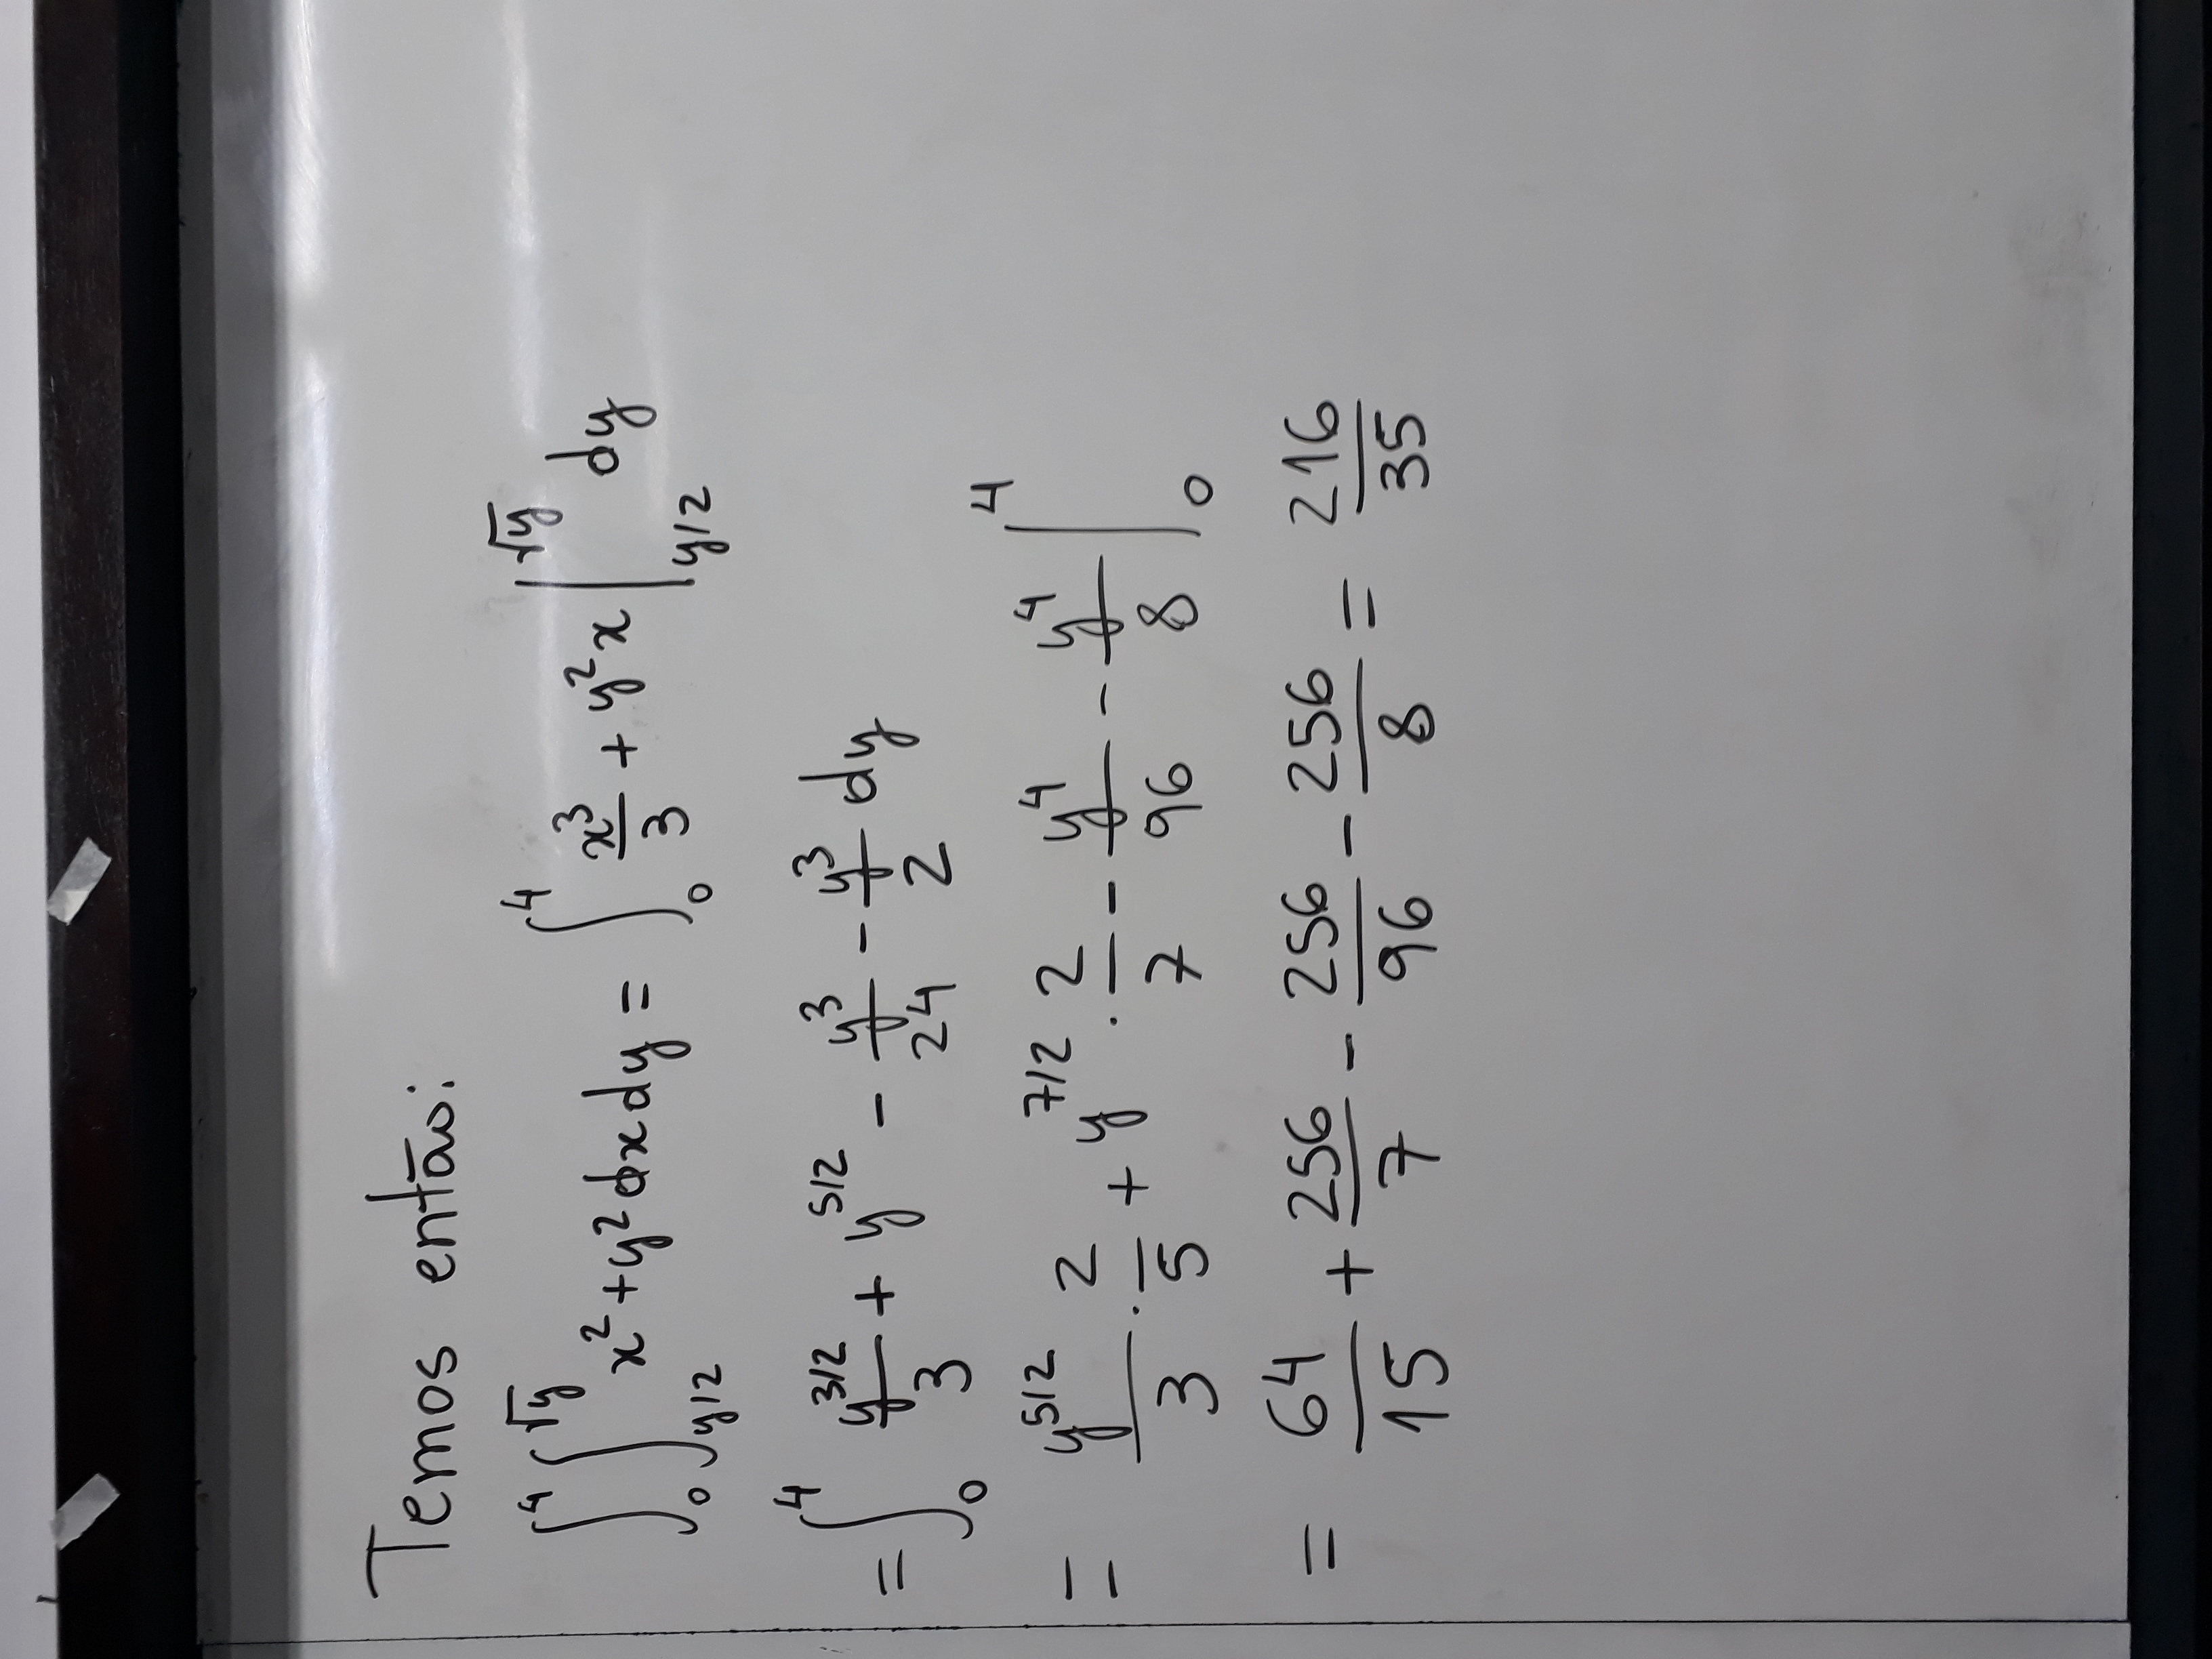 Temos então:
∫₀⁴ ∫_{y/2}^{√y} x² + y² dx dy = ∫₀⁴ x³/3 + y²x |_{y/2}^{√y} dy
= ∫₀⁴ y^{3/2}/3 + y^{5/2} - y³/24 - y³/2 dy
= y^{5/2}/3 · 2/5 + y^{7/2} · 2/7 - y⁴/96 - y⁴/8 |₀⁴
= 64/15 + 256/7 - 256/96 - 256/8 = 216/35